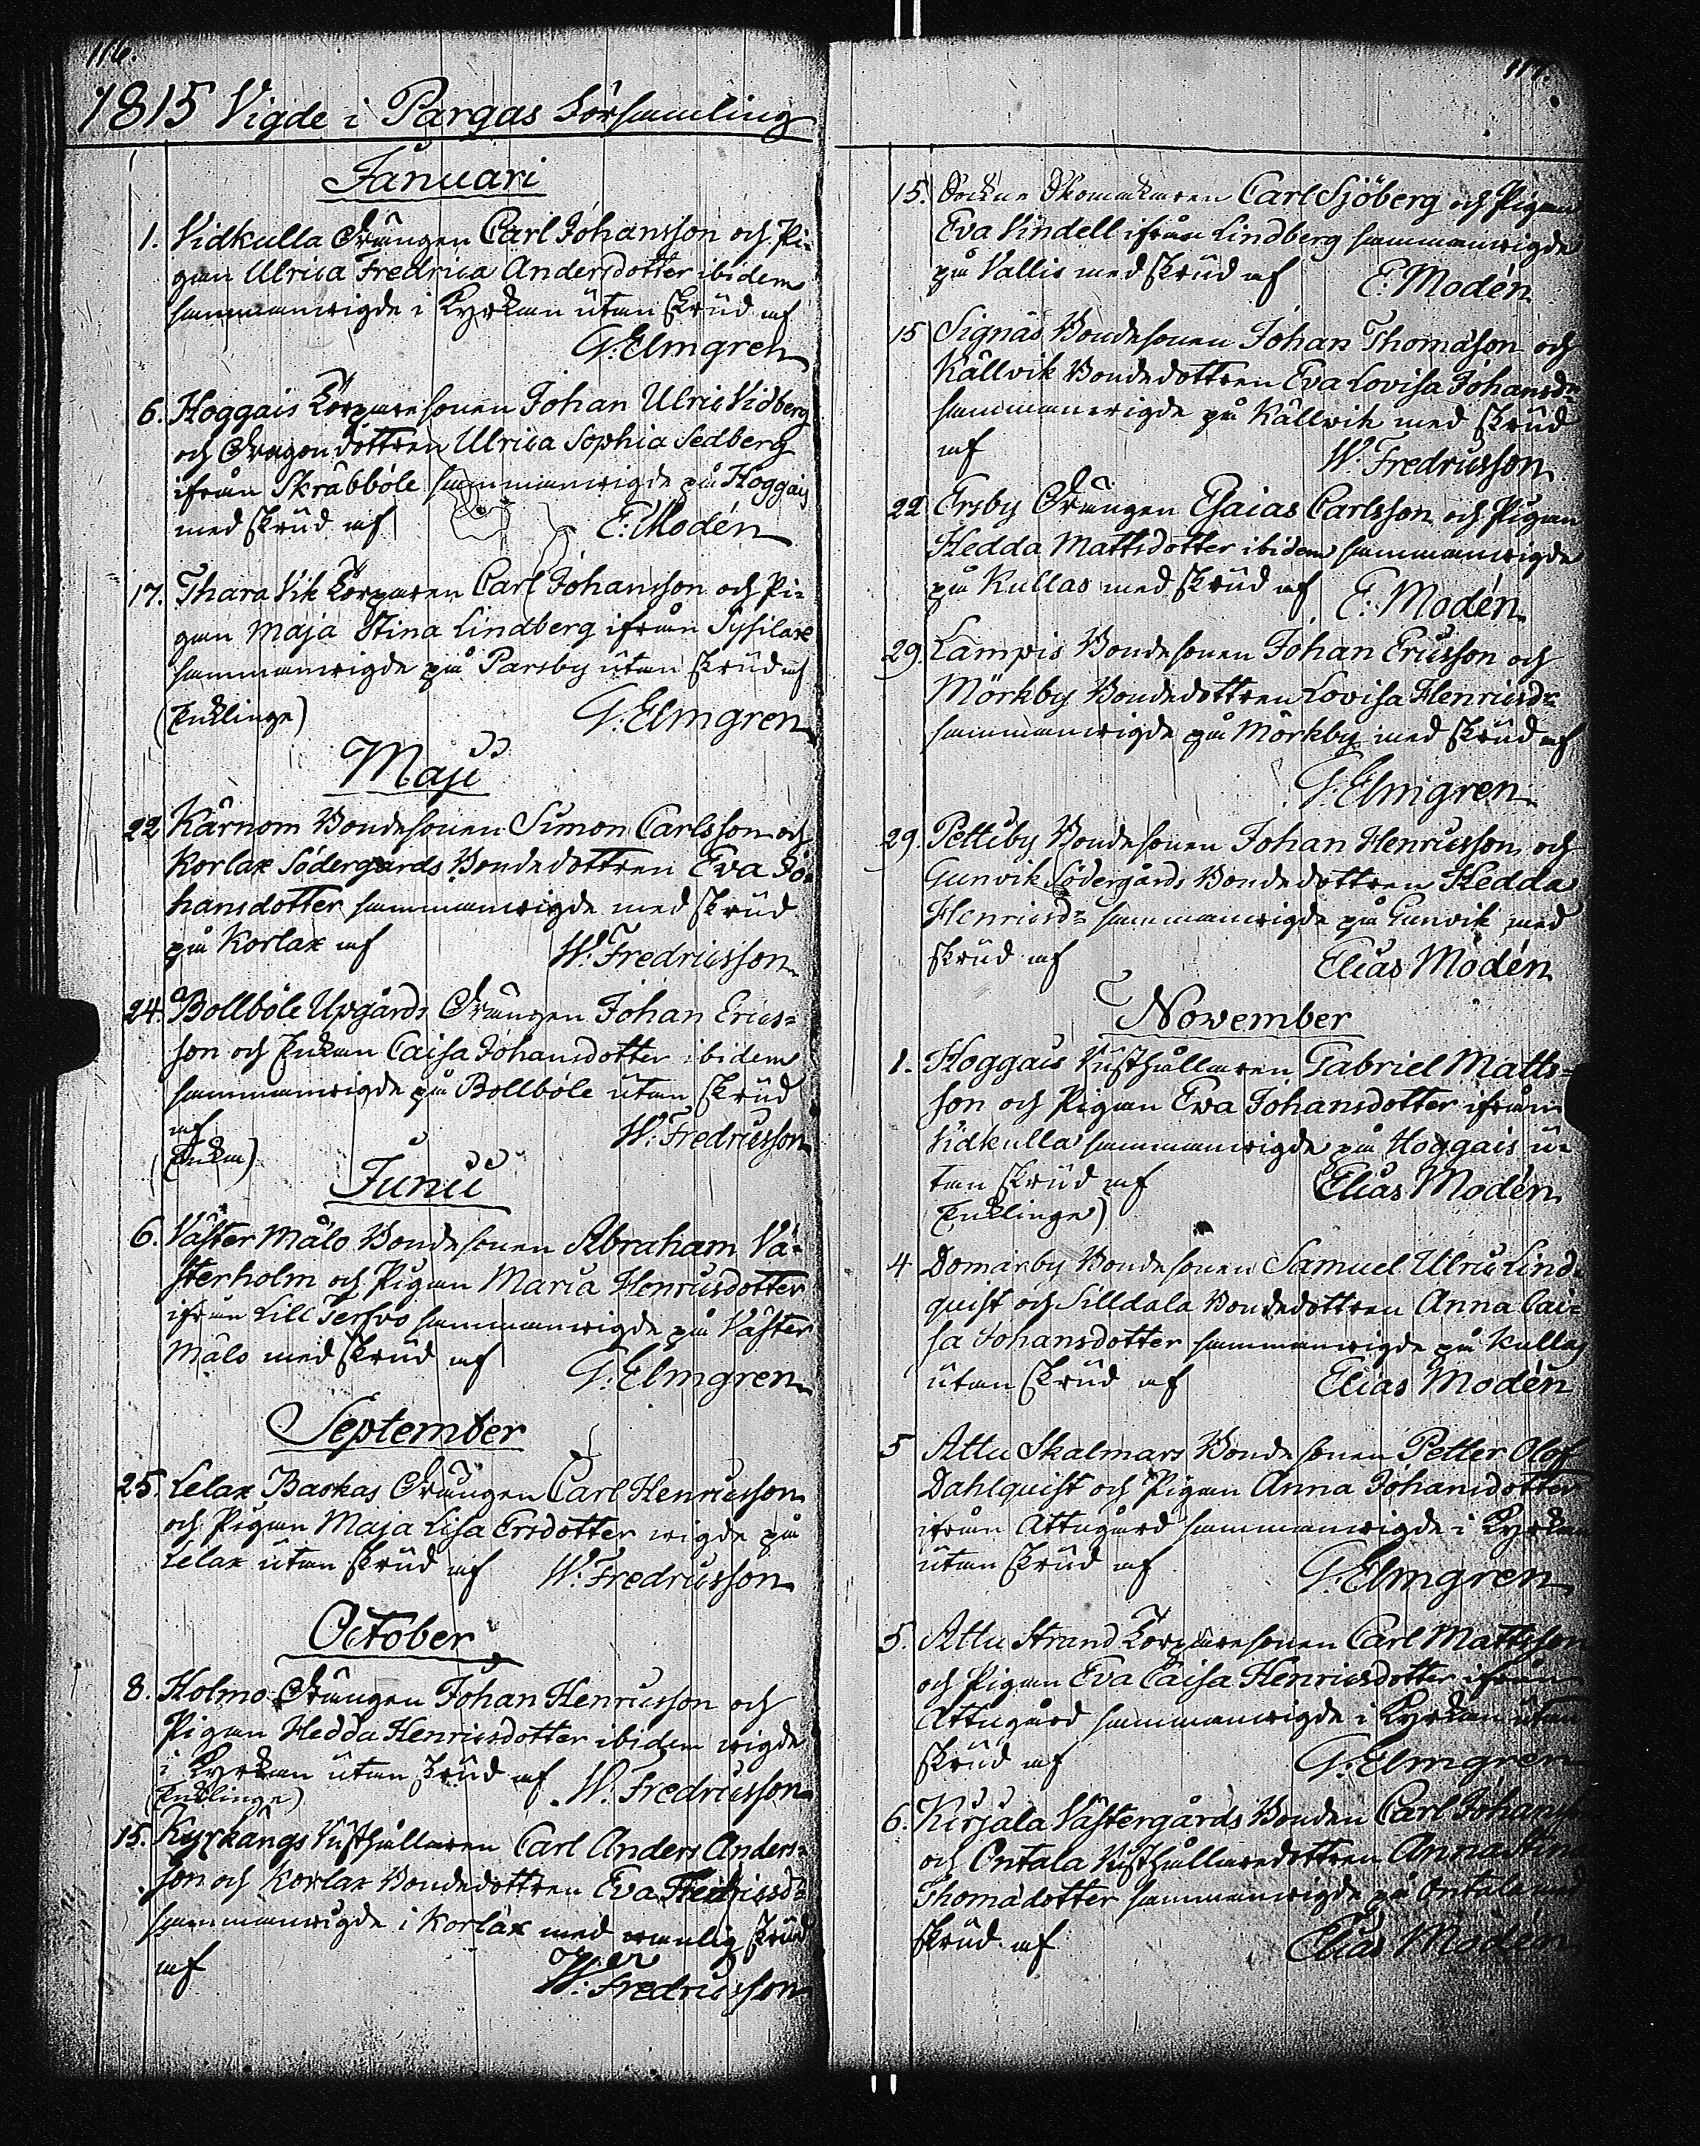 116.
1815 Vigde i Pargas Församling
Januari
1. Vidkulla Drängen Carl Johansson och Pi-
gan Ulrica Fredrica Andersdotter ibidem
sammanvigde i Kyrkan utan skrud af
G. Elmgren
6. Hoggais Torparesonen Johan Ulric Vidberg
och Dragon dottren Ulrica Sophia Sedberg
ifrån Skräbböle sammanvigde på Hoggais
med skrud af E. Modén
17. Tharavik Torparen Carl Johansson och Pi-
gan Maja Stina Lindberg ifrån Sysilax
sammanvigde på Parsby utan skrud af
(Enklinge) G. Elmgren
Maji
22 Kärnom Bondesonen Simon Carlsson och
Korlax Södergårds Bondedottren Eva Jo-
hansdotter sammanvigde med skrud
på Korlax af W. Fredricsson
24. Bollböle Upgårds Drängen Johan Erics-
son och Enkan Caisa Johansdotter ibidem
sammanvigde på Bollböle utan skrud
af W. Fredricsson
(Enka)
Junii
6. Väster Målo Bondesonen Abraham Vä-
sterholm och Pigan Maria Henricsdotter
ifrån Lill Tervo sammanvigde på Väster
Målo med skrud af G. Elmgren
September
25. Lelax Backas Drängen Carl Henricsson
och Pigan Maja Lisa Ersdotter vigde på
Lelax utan skrud af W. Fredricsson
October
8. Holmo Drängen Johan Henricsson och
Pigan Hedda Henricsdotter ibidem vigde
i Kyrkan utan skrud af W. Fredricsson
(Enklinge)
15. Kyrkängs Rusthållaren Carl Anders Anders-
son och Korlax Bondedottren Eva Fredricsd:r
sammanvigde i Korlax med vanlig skrud
af W. Fredricsson
117.
15. Sockne Skomakaren Carl Sjöberg och Pigan
Eva Vindell ifrån Lindberg sammanvigde
på Vallis med skrud af E. Modén
15 Signäs Bondesonen Johan Thomason och
Källvik Bondedottren Eva Lovisa Johansd:r
sammanvigde på Källvik med skrud
af W. Fredricsson
22 Ersby Drängen Esaias Carlsson och Pigan
Hedda Mattsdotter ibidem sammanvigde
på Kullas med skrud af E. Modén
29. Lampis Bondesonen Johan Ericsson och
Mörkby Bondedottren Lovisa Henricsd:r
sammanvigde på Mörkby med skrud af
G. Elmgren
29. Pettiby Bondesonen Johan Henricsson och
Gunvik Södergårds Bondedottren Hedda
Henricsd:r sammanvigde på Gunvik med
skrud af Elias Modén
November
1. Hoggais Rusthållaren Gabriel Matts-
son och Pigan Eva Johansdotter ifrån
Vidkulla sammanvigde på Hoggais u-
tan skrud af Elias Modén
Enklinge)
4 Domarby Bondesonen Samuel Ulric Lind-
quist och Silldala Bondedottren Anna Cai-
sa Johansdotter sammanvigde på Kullas
utan skrud af Elias Modén
5 Attu Skalmars Bondesonen Petter Olof
Dahlquist och Pigan Anna Johansdotter
ifrån Attugård sammanvigde i Kyrkan
utan skrud af G. Elmgren
5. Attu Strand Torparesonen Carl Mattsson
och Pigan Eva Caisa Henricsdotter ifrån
Attugård sammanvigde i Kyrkan utan
skrud af G. Elmgren
6. Kirjala Västergårds Bonden Carl Johans
och Ontala Rusthållaredottren Anna Stina
Thomadotter sammanvigde på Ontala med
skrud af Elias Modén